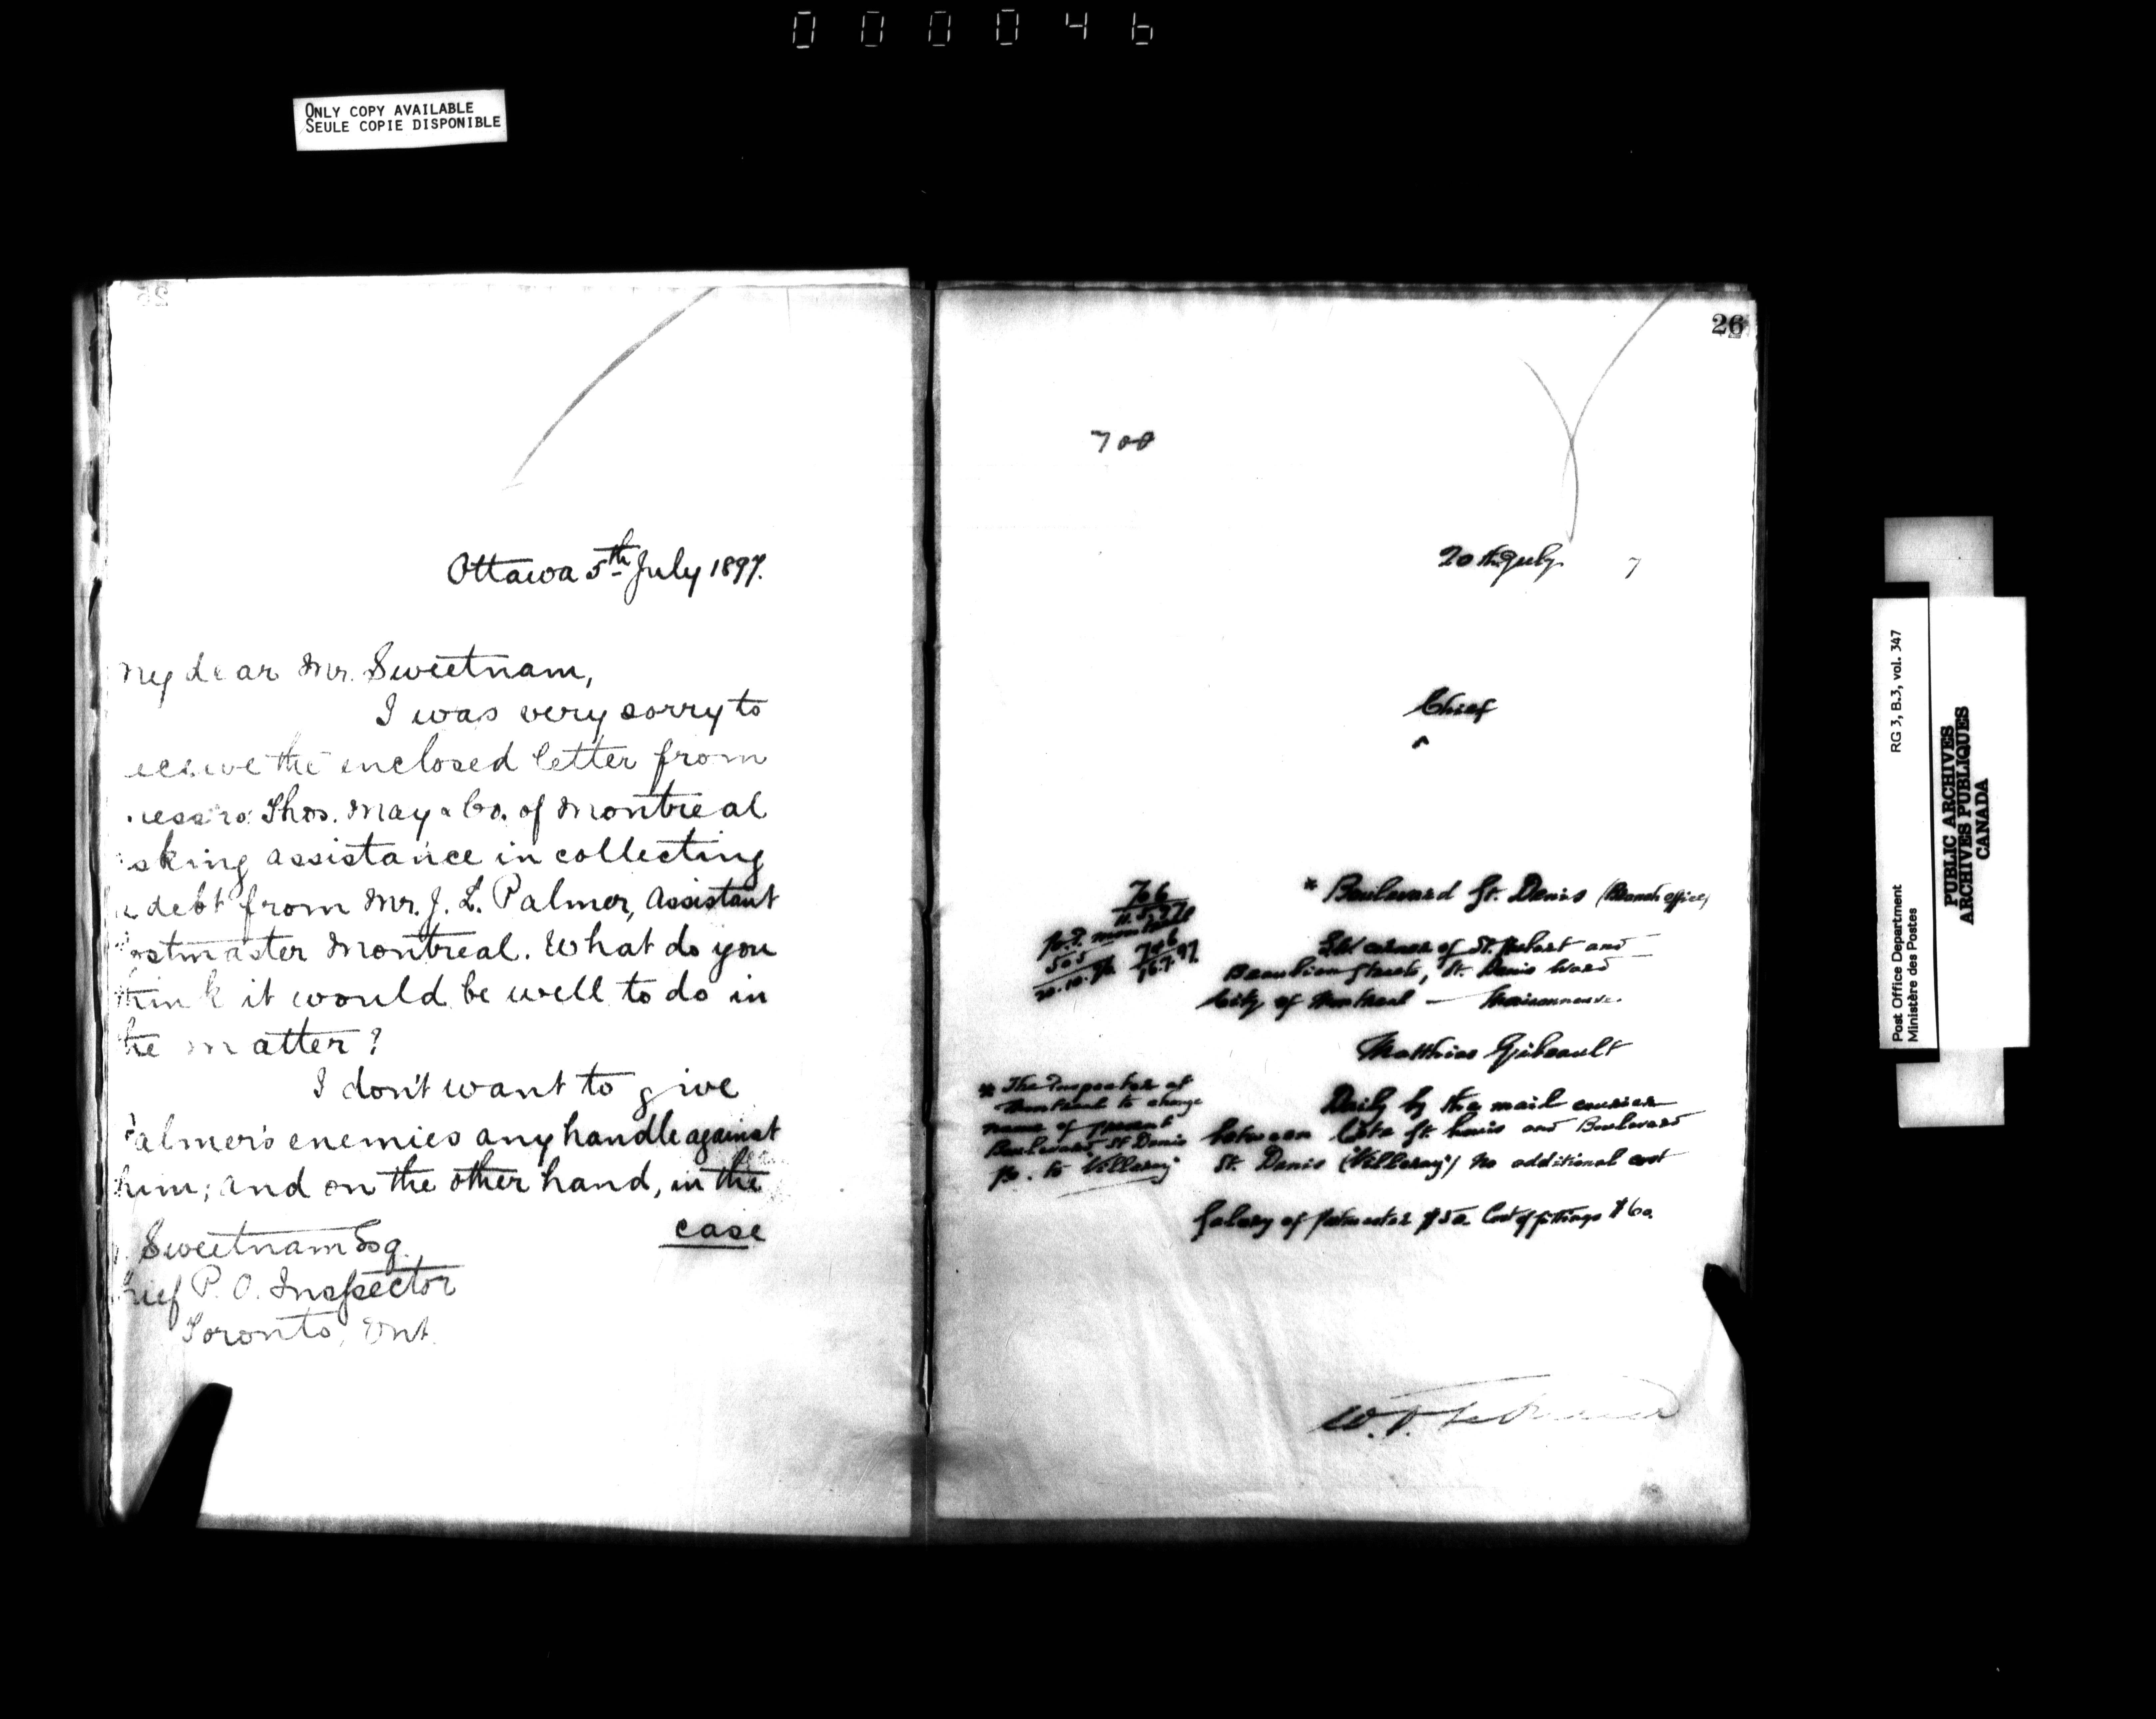 000046
ONLY COPY AVAILABLE
SEULE COPIE DISPONIBLE
Ottawa 5th July 1897.
My dear Mr. Sweetnam,
I was very sorry to
eceive the enclosed letter from
essrs. Thos. May & Co. of Montreal
sking assistance in collecting
a debt from Mr. J. L. Palmer, Assistant
ostmaster Montreal. What do you
think it would be well to do in
the matter?
I don't want to give
Palmer's enemies any handle against
him; and on the other hand, in the
case
Sweetnam Esq.
hief P. O. Inspector
Toronto, Ont.
26
700
20th July 7
Chief
^
766
11.5.97
P.P. Montreal
505
20.10.96
746
16.7.97
* Boulevard St. Denis (Branch office)
S.W. corner of St. Hubert and
Beaubien Streets, St. Denis Ward
City of Montreal — Maisonneuve.
Matthias Gibeault
* The Inspector at
Montreal to change
name of present
Boulevard St Denis
P.O. to Villeray
Daily by the mail courier
between Côte St. Louis and Boulevard
St. Denis (Villeray) No additional cost
Salary of Postmaster $50. Cost of fittings $60.
Post Office Department
Ministère des Postes
RG 3, B.3, vol. 347
PUBLIC ARCHIVES
ARCHIVES PUBLIQUES
CANADA